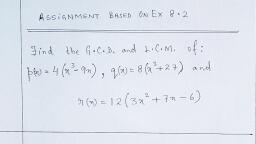 ASSIGNMENT BASED ON EX 8.2
Find the G.C.D. and L.C.M. of:
p(x) = 4(x³-9x), q(x) = 8(x³+27) and
r(x) = 12(3x² + 7x - 6)